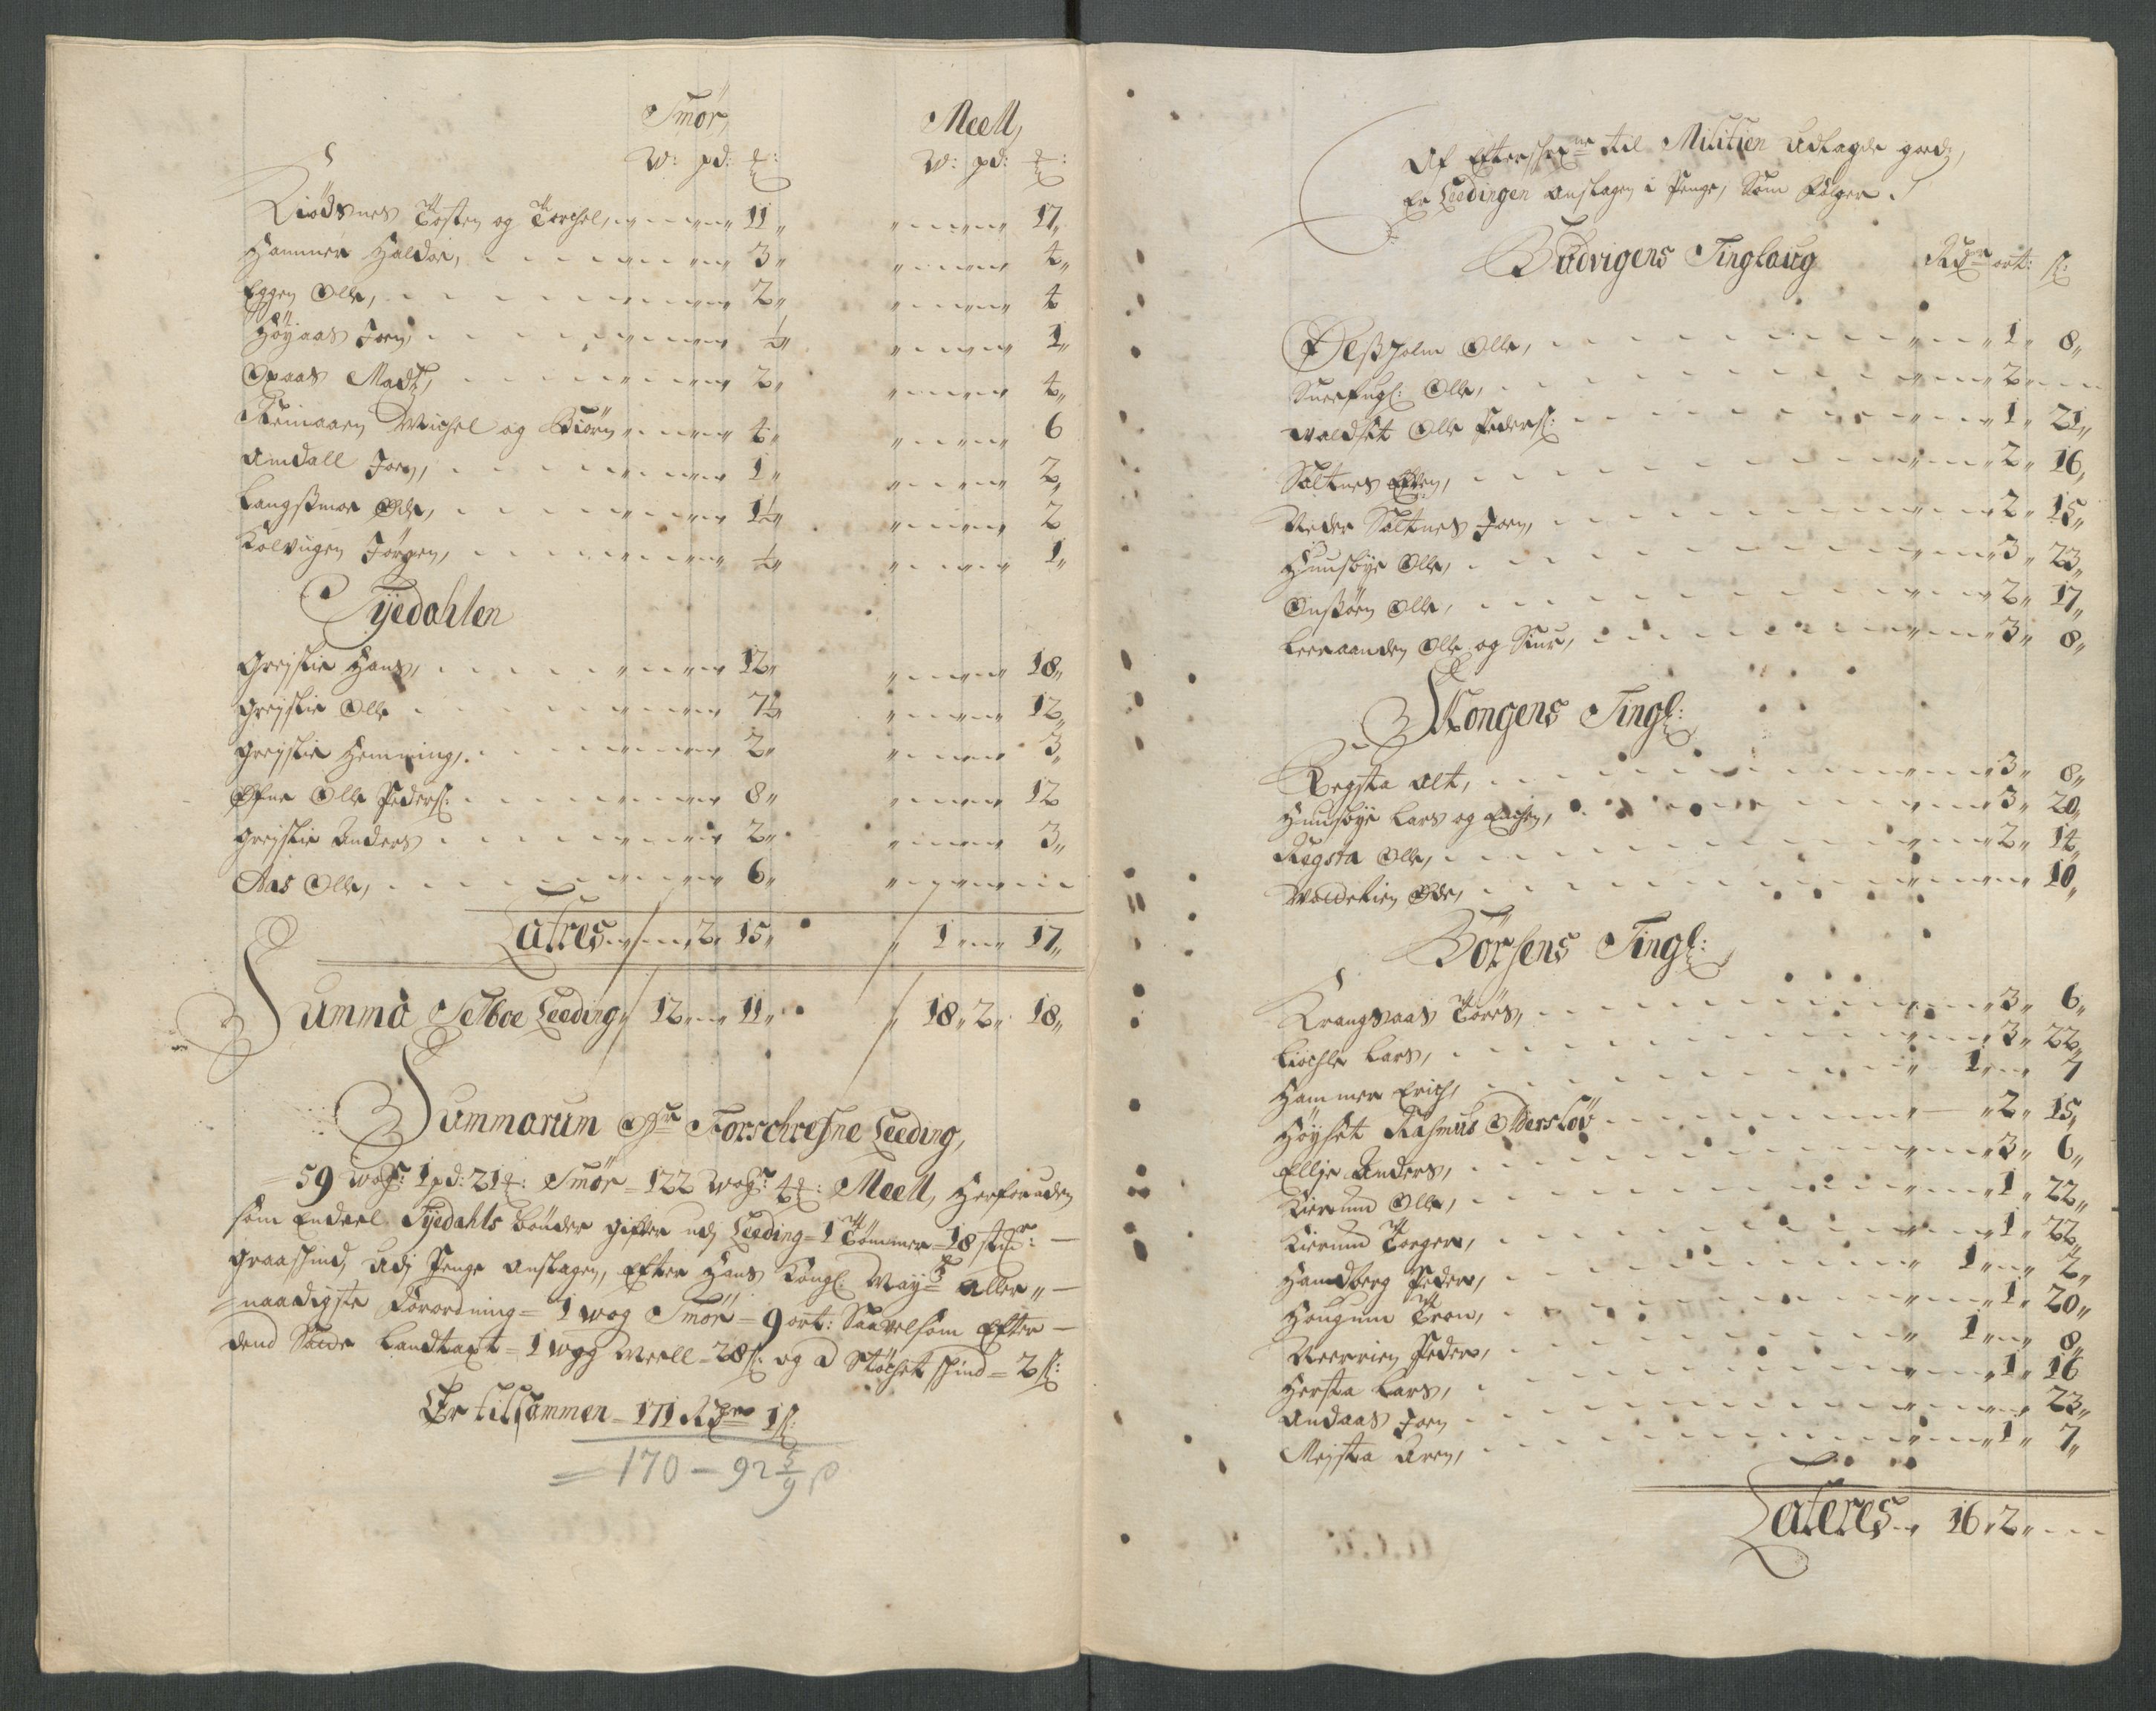 Smør, Meell,
W: pd: ℔: W: pd: ℔:
Kiødsnes Tosten og Torchel, 11 " 17 "
Hammer Haldor, 3 " 4 "
Eggen Olle, 2 " 4
Høyaas Joen, ½ " 1 "
Opaas Madtz, 2 " 4 "
Renaaen Michel og Biørn 4 " 6
Amdall Joen, 1 " 2 "
Langsmoe Olle, 1½ " 2
Kolvigen Jørgen, ½ " 1 "
Tÿedahlen
Græslie Hans, 12 " 18 "
Græslie Olle 7½ " 12 "
Græslie Hemming, 2 " 3 "
Øfne Olle Peders: 8 " 12
Græslie Anders 2 " 3 "
Aas Olle, 6 "
Latres 2 " 15 " " 1 " 17 "
Summa Selboe Leeding 12 " 11 " " 18 " 2 " 18 "
Summarum Ofr Forschrefne Leeding,
59 wog: 1 pd: 21 ℔: Smør = 122 wog: 4 ℔: Meell, Herforuden
som Endeel Tÿedahls bønder gifter udj Leeding = 1 Tømmer = 18 stchr: —
graaschind, udj Penge anslagen, efter Hans Kongl: Mayts aller" —
= naadigste Forordning = 1 wog Smør = 9 ort: Saavelsom Efter —
dend Sædv Landtaxt = 1 wog Meell = 28 s: og a Støchet schind = 2 s:
Er tilsammen = 171 Rdr 1 s:
= 170 — 92 5/9 β
Af Effterschrne til Militien Udlagde gordz,
Er Leedingen anslagen i Penge, Som Følger.
Budvigens Tinglaug Rdr ort: s:
Ølsholm Olle, 1 " 8 "
Snefugl: Olle, 2 "
Waldset Olle Peders: 1 " 21 "
Saltnes Effen, 2 " 16 "
Neder Saltnes Joen, 2 " 15 "
Huusbye Olle, 3 " 23 "
Onsøen Olle, 2 " 17 "
Leeraanden Olle og Siur, 3 " 8 "
Skongens Tingl:
Regsta alt, 3 " 8 "
Huusbye Lars og Enchen, 3 " 20 "
Rugsta Olle, 2 " 14 "
Woldetien Olle, 10 "
Børsens Tingl:
Krangsaas Torres, 3 " 6 "
Liøchle Lars, 3 " 22 "
Hammer Erich, 1 " 7
Høyset Rasmus Olderslov 2 " 15 "
Ellie Anders, 3 " 6 "
Kierum Olle, 1 " 22 "
Kierum Torger, 1 " 22 "
Hamdberg Peder, 1 " 2 "
Hougum Tron, 1 " 20 "
Neervien Peder, 1 " 8 "
Hersta Lars, 1 " 16
Andaas Joen 23 "
Mejsta Aren, 1 " 7 "
Lateres 16 " 2 "